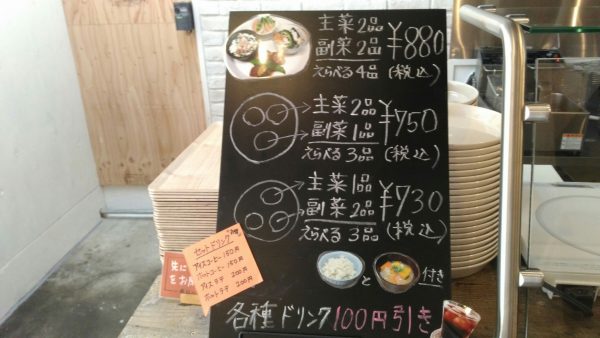 主菜2品
副菜2品
えらべる4品
¥880
(税込)
主菜2品
副菜1品
えらべる3品
¥750
(税込)
主菜1品
副菜2品
えらべる3品
¥730
(税込)
と
付き
各種ドリンク100円引き
セットドリンク
アイスコーヒー 150円
ホットコーヒー 150円
アイスラテ 200円
ホットラテ 200円
先に